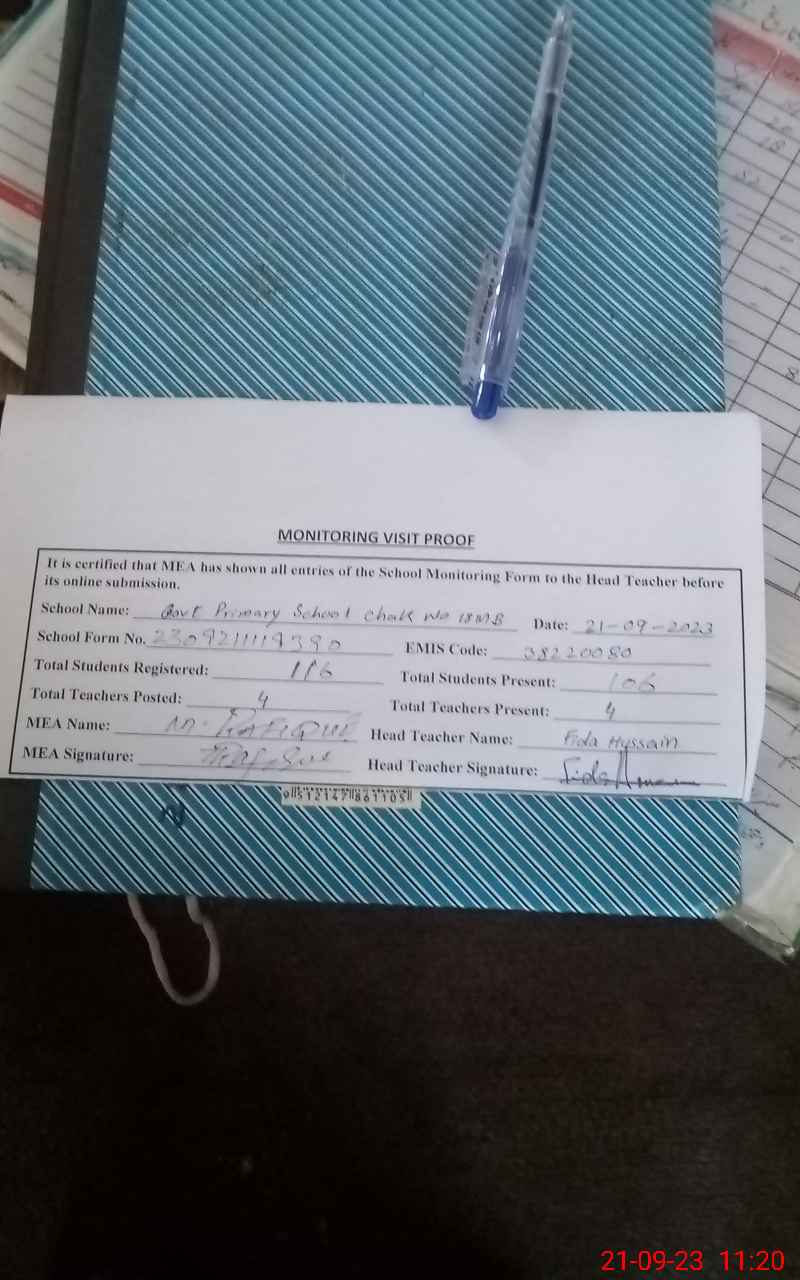 MONITORING VISIT PROOF
It is certified that MEA has shown all entries of the School Monitoring Form to the Head Teacher before
its online submission.
School Name: Govt Primary School Chak No 18MB Date: 21-09-2023
School Form No. EMIS Code: 38220080
Total Students Registered: 116 Total Students Present: 106
Total Teachers Posted: 4 Total Teachers Present: 4
MEA Name: M. RAFIQUE Head Teacher Name: Fida Hussain
MEA Signature: Head Teacher Signature:
21-09-23 11:20